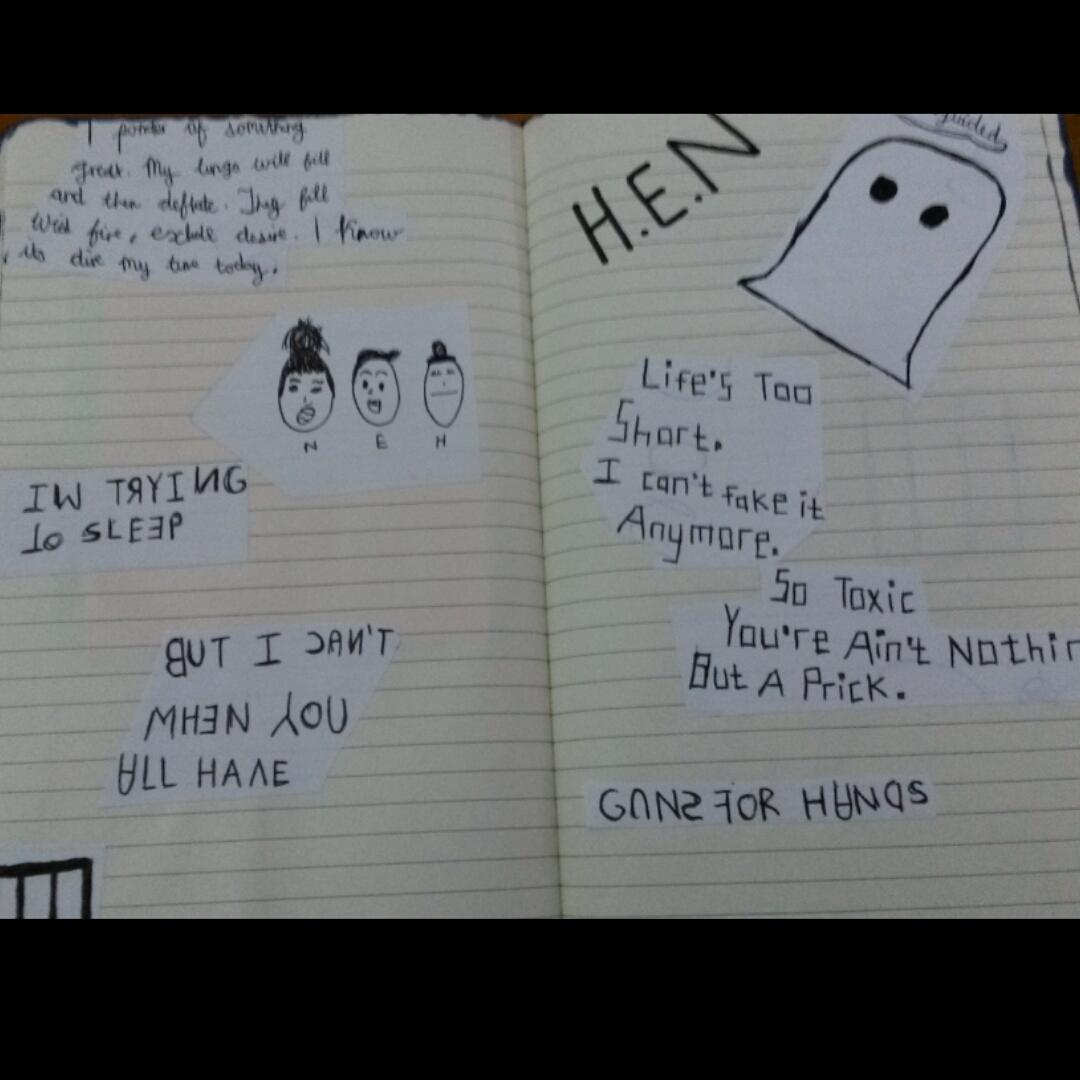 I ponder of something
great. My lungs will fill
and then deflate. They fill
with fire, exhale desire. I know
its dire my time today.
N E H
IM TRYING
TO SLEEP
BUT I CAN'T
WHEN YOU
ALL HAVE
H.E.N
guided
Life's Too
Short.
I can't fake it
Anymore.
So Toxic
You're Ain't Nothin
But A Prick.
GUNS FOR HANDS